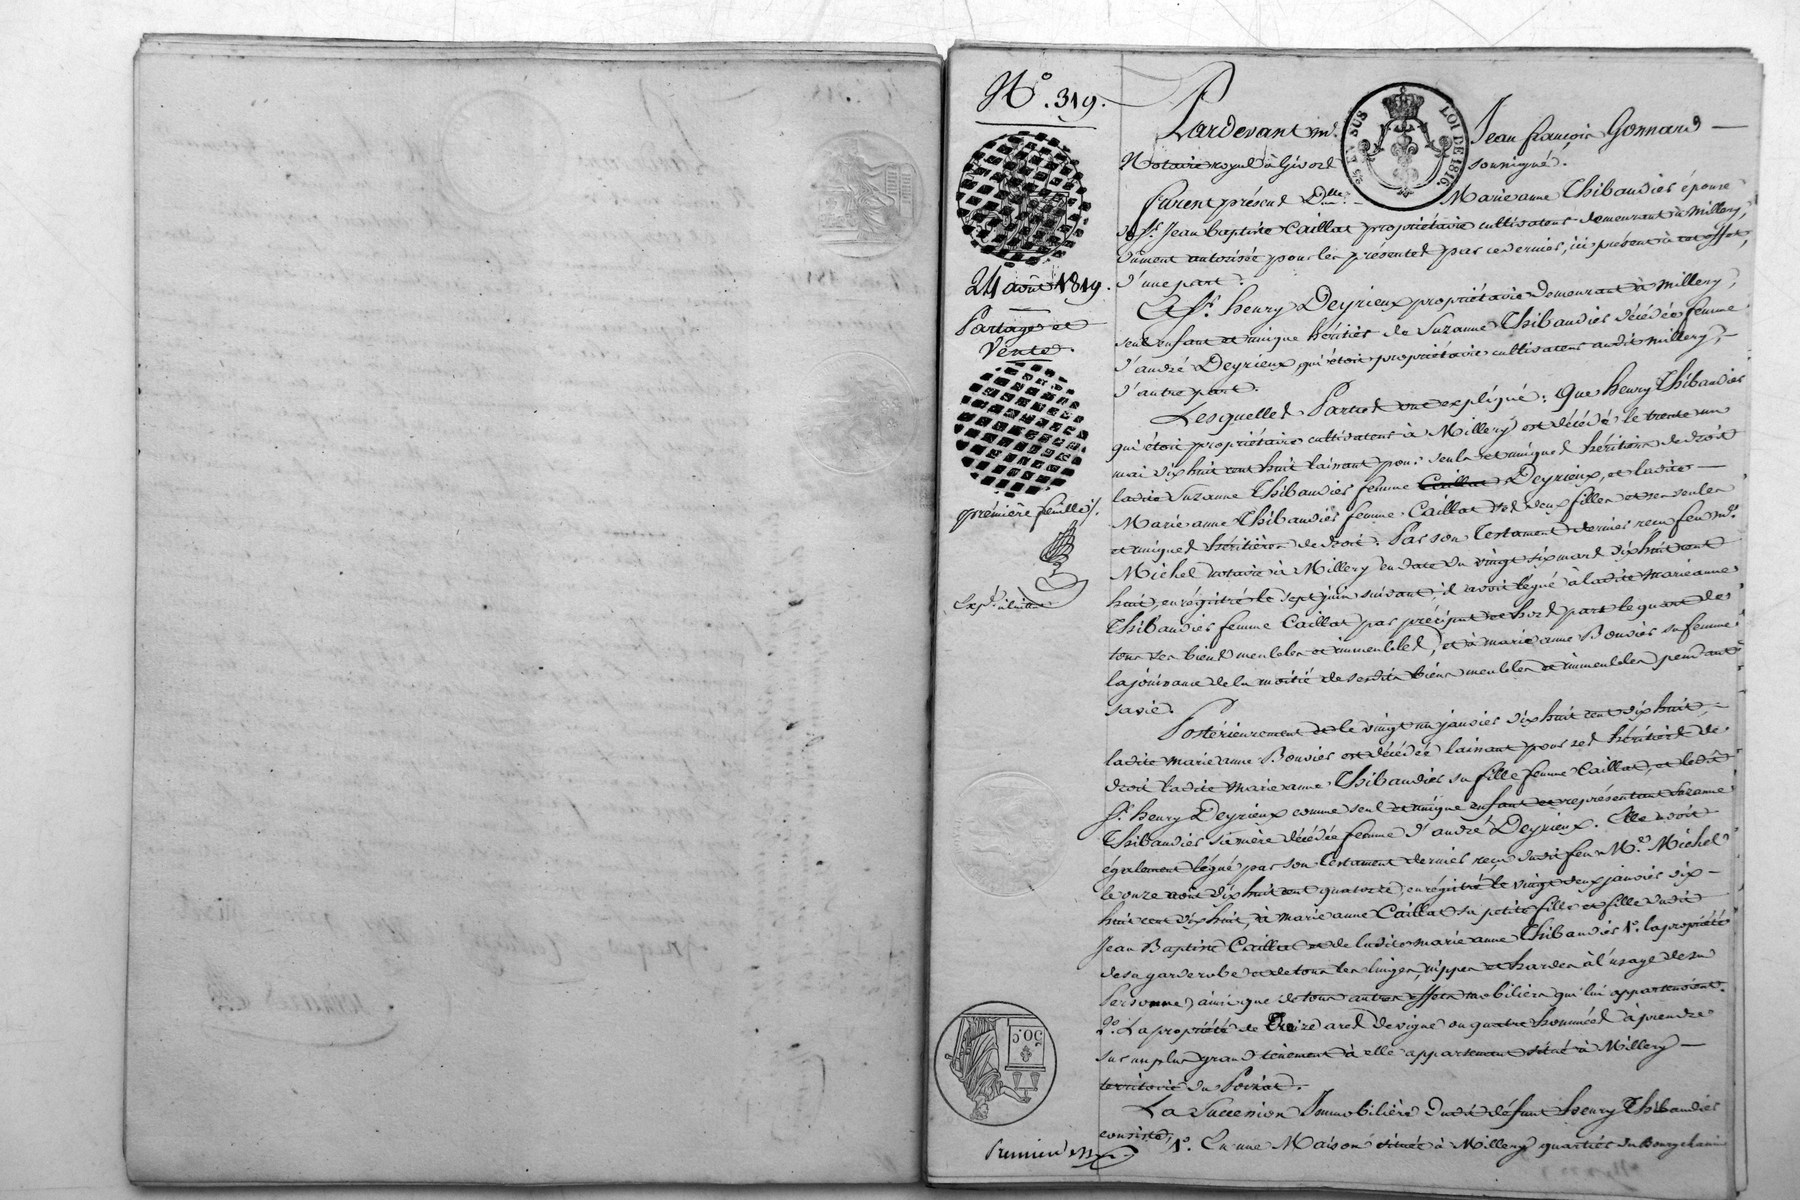 N.º 319.
24 août 1819.
Partage et
Vente
première feuille
25 EN SUS
LOI DE 1816.
50.c
Pardevant m.e Jean françois Gonnard
Notaire royal à Givors soussigné.
Furent présens D.lle Marie anne Thibaudier épouse
de S.r Jean Baptiste Caillat propriétaire cultivateur demeurant à Millery,
dûment autorisée pour les présentes par ce dernier, ici présent à cet effet,
d'une part.
Et S.r henry Deyrieux propriétaire demeurant à Millery,
seul enfant et unique héritier de Suzanne Thibaudier décédée femme
d'andré Deyrieux, qui étoit propriétaire cultivateur audit Millery,
d'autre part.
Lesquelles Parties ont expliqué : Que henry Thibaudier
qui étoit propriétaire cultivateur à Millery est décédé le trente un
mai dix huit cent huit laissant pour seules et uniques héritières de droit
ladite Suzanne Thibaudier femme Deyrieux, et ladite
Marie anne Thibaudier femme Caillat ses deux filles et ses seules
et uniques héritières de droit. Par son Testament dernier reçu feu M.e
Michel notaire à Millery en date du vingt six mars dix huit cent
huit, enrégistré le sept juin suivant, il avoit légué à ladite Marie anne
Thibaudier femme Caillat par préciput et hors part le quart de
tous ses biens meubles et immeubles, et à marie anne Bouvier sa femme
la jouissance de la moitié de sesdits biens meubles et immeubles pendant
sa vie.
Postérieurement et le vingt un janvier dix huit cent dix huit,
ladite marie anne Bouvier est décédée laissant pour ses héritiers de
droit ladite Marie anne Thibaudier sa fille femme Caillat, et ledit
S.r henry Deyrieux comme seul et unique enfant et représentant Suzanne
Thibaudier sa mère décédée femme d'andré Deyrieux. Elle avoit
également légué par son testament dernier reçu dudit feu M.e Michel
le onze août dix huit cent quatorze, enrégistré le vingt deux janvier dix
huit cent dix huit, à marie anne Caillat sa petite fille et fille dudit
Jean Baptiste Caillat et de ladite marie anne Thibaudier 1.º la propriété
de sa garderobe et de tous les linges, nippes et hardes à l'usage de sa
Personne, ainsi que de tous autres effets mobiliers qui lui appartenoient.
2.º La propriété de Treize ares de vigne ou quatre hommées à prendre
sur un plus grand tènement à elle appartenant situé à Millery
territoire du
La Succession Immobilière dudit défunt henry Thibaudier
consiste, 1.º En une Maison située à Millery quartier du Bourgchanin